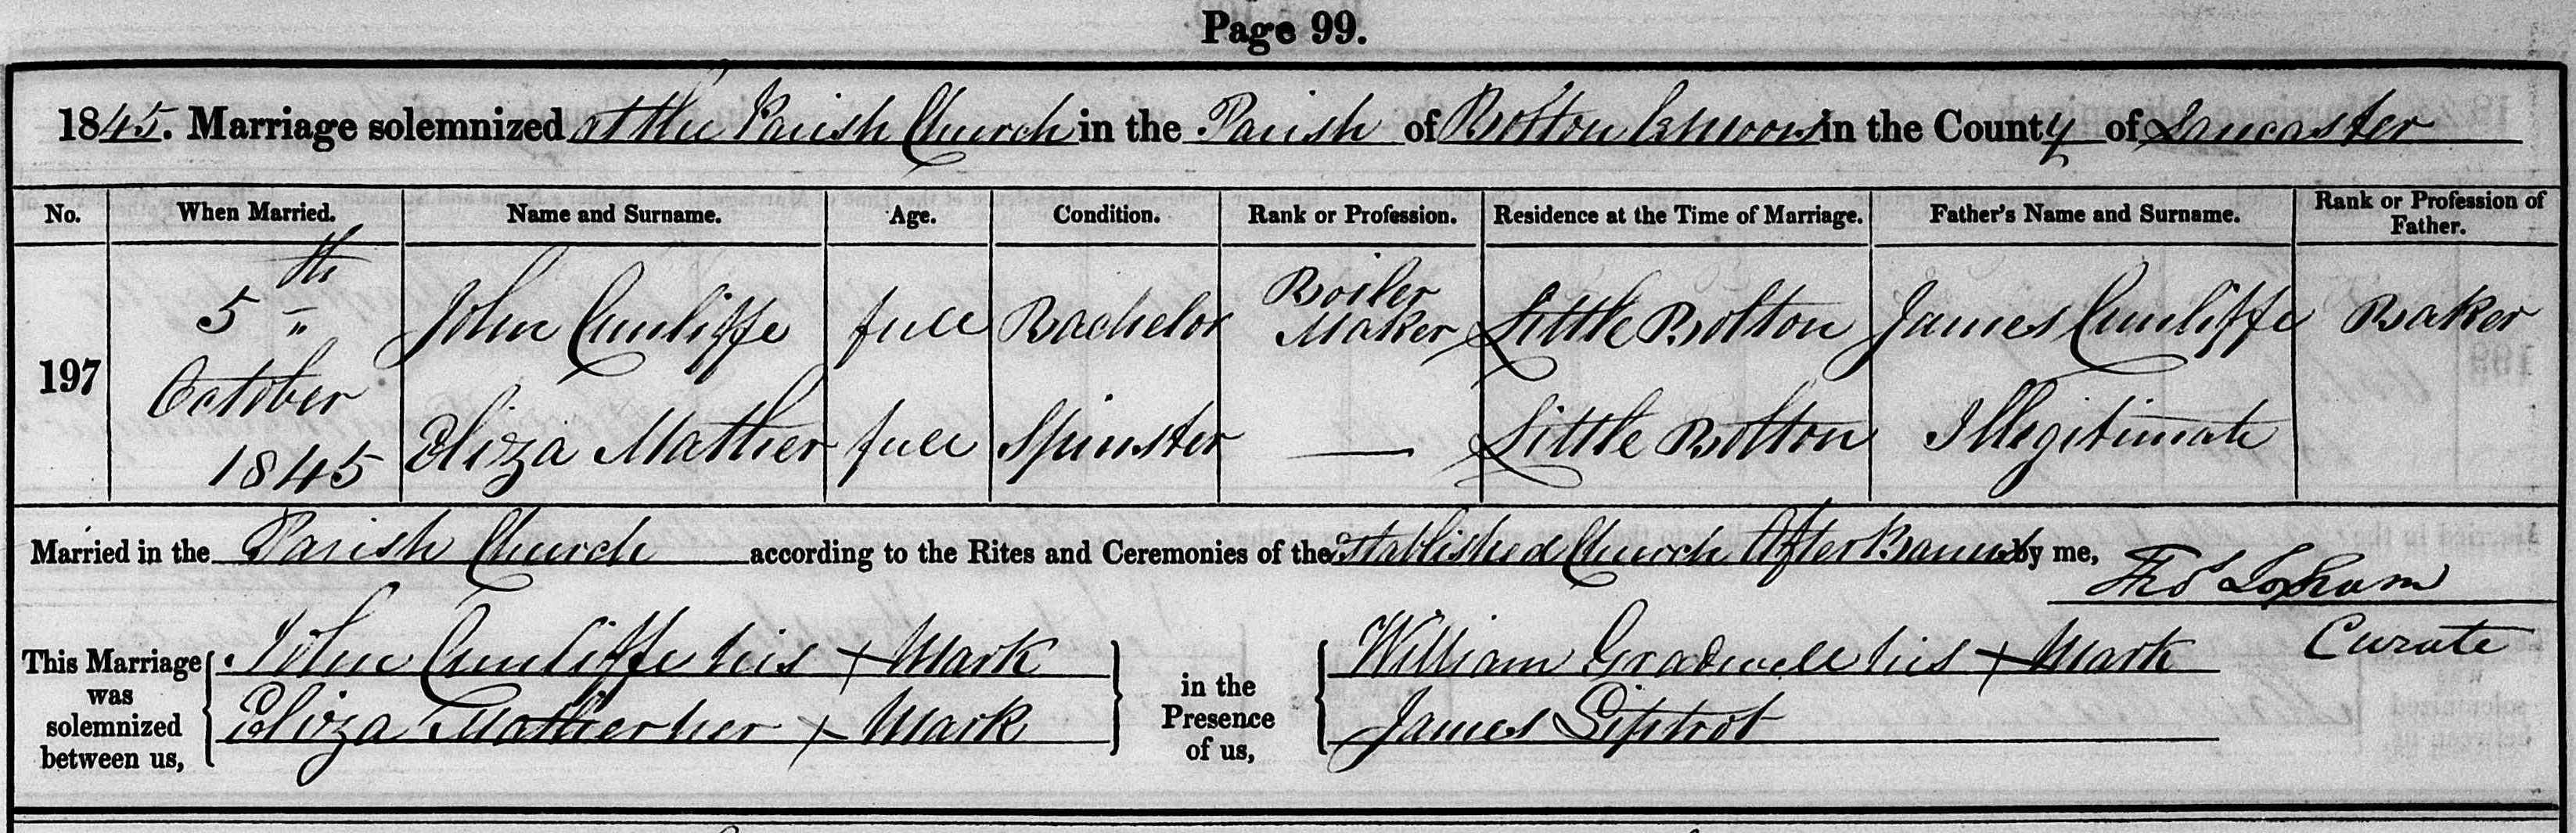 Page 99.
1845. Marriage solemnized at the Parish Church in the Parish of Bolton in the County of Lancaster
No. When Married. Name and Surname. Age. Condition. Rank or Profession. Residence at the Time of Marriage. Father's Name and Surname. Rank or Profession of Father.
197 5th October 1845
John Cunliffe full Bachelor Boiler Maker Little Bolton James Cunliffe Baker
Eliza Mather full Spinster — Little Bolton Illegitimate
Married in the Parish Church according to the Rites and Ceremonies of the Established Church After Banns by me,
Thos Loxham
Curate
This Marriage was solemnized between us,
John Cunliffe his x Mark
Eliza Mather her x Mark
in the Presence of us,
William Gradwell his x Mark
James Siptrot